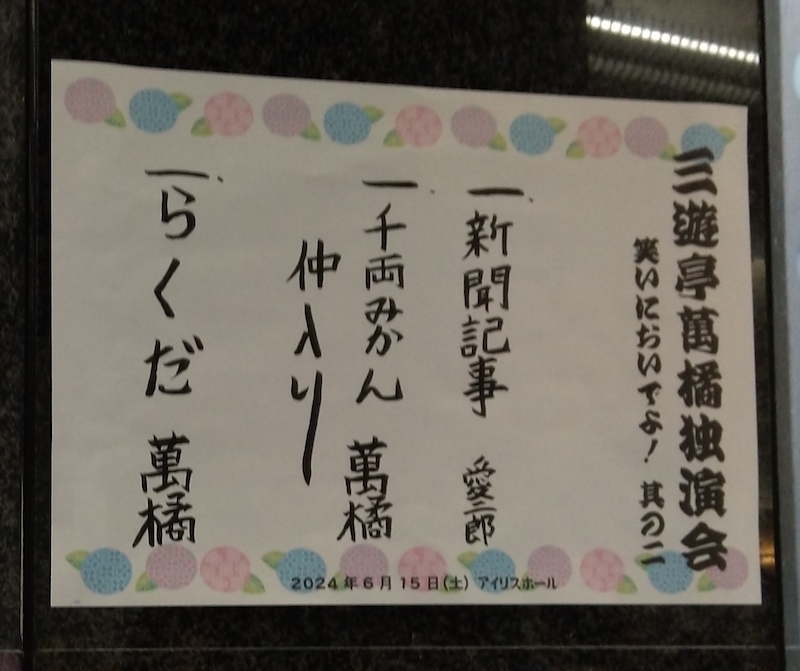 三遊亭萬橘独演会
笑いにおいでよ! 其の二
一、新聞記事 愛二郎
一、千両みかん 萬橘
仲入り
一、らくだ 萬橘
2024年6月15日(土) アイリスホール